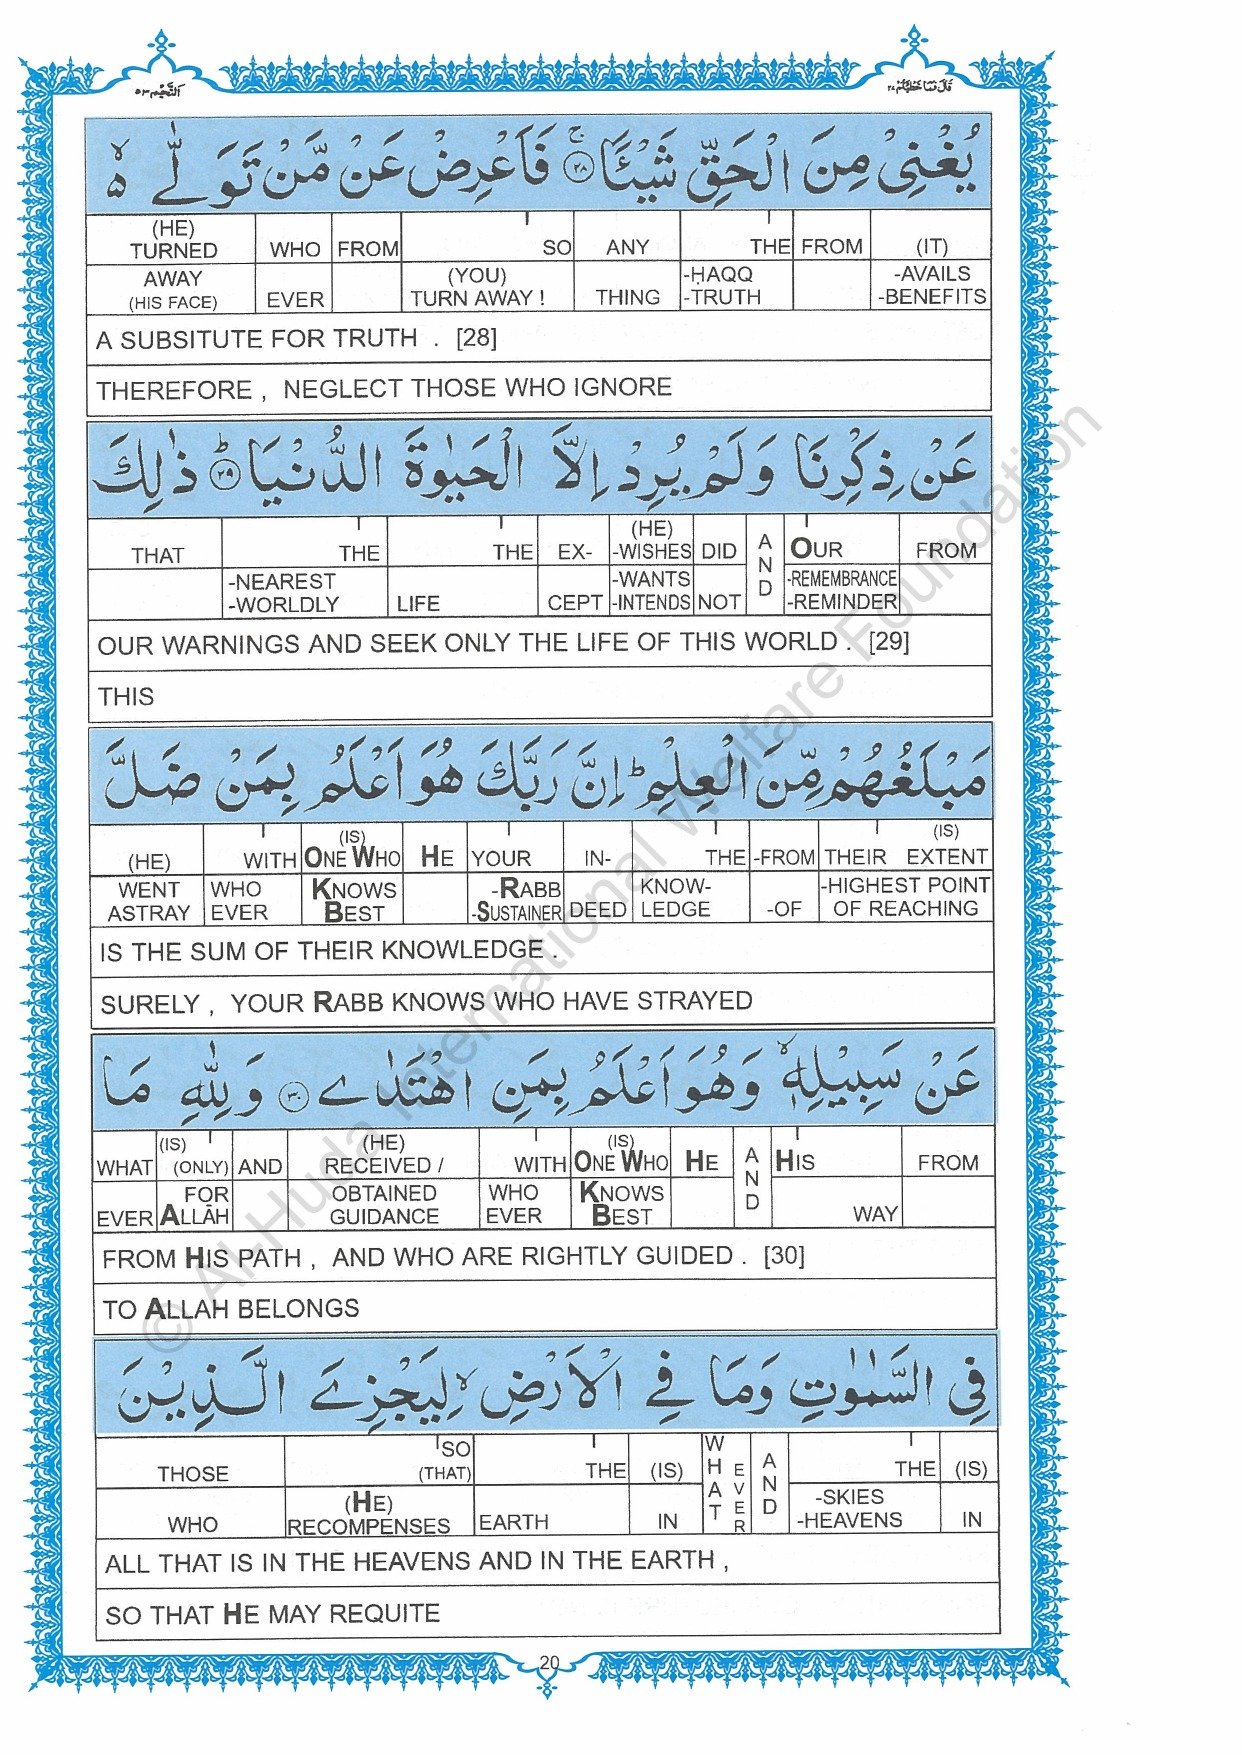 النَّجْم ٥٣
قَالَ فَمَا خَطْبُكُمْ ٢٧
يُغْنِىْ مِنَ الْحَقِّ شَيْـًٔا ۚ ﴿٢٨﴾ فَاَعْرِضْ عَنْ مَّنْ تَوَلّٰى ۙ٥
(HE) TURNED WHO FROM SO ANY THE FROM (IT)
AWAY (HIS FACE) EVER (YOU) TURN AWAY ! THING -ḤAQQ -TRUTH -AVAILS -BENEFITS
A SUBSITUTE FOR TRUTH . [28]
THEREFORE , NEGLECT THOSE WHO IGNORE
عَنْ ذِكْرِنَا وَلَمْ يُرِدْ اِلَّا الْحَيٰوةَ الدُّنْيَا ؕ ﴿٢٩﴾ ذٰلِكَ
THAT THE THE EX- (HE) -WISHES DID AND OUR FROM
-NEAREST -WORLDLY LIFE CEPT -WANTS -INTENDS NOT -REMEMBRANCE -REMINDER
OUR WARNINGS AND SEEK ONLY THE LIFE OF THIS WORLD . [29]
THIS
مَبْلَغُهُمْ مِّنَ الْعِلْمِ ؕ اِنَّ رَبَّكَ هُوَ اَعْلَمُ بِمَنْ ضَلَّ
(HE) WITH (IS) ONE WHO HE YOUR IN- THE -FROM THEIR (IS) EXTENT
WENT ASTRAY WHO EVER KNOWS BEST -RABB -SUSTAINER DEED KNOW- LEDGE -OF -HIGHEST POINT OF REACHING
IS THE SUM OF THEIR KNOWLEDGE .
SURELY , YOUR RABB KNOWS WHO HAVE STRAYED
عَنْ سَبِيْلِهٖ ۙ وَهُوَ اَعْلَمُ بِمَنِ اهْتَدٰى ﴿٣٠﴾ وَلِلّٰهِ مَا
WHAT (IS) (ONLY) AND (HE) RECEIVED / WITH (IS) ONE WHO HE AND HIS FROM
EVER FOR ALLĀH OBTAINED GUIDANCE WHO EVER KNOWS BEST WAY
FROM HIS PATH , AND WHO ARE RIGHTLY GUIDED . [30]
TO ALLAH BELONGS
فِى السَّمٰوٰتِ وَمَا فِى الْاَرْضِ ۙ لِيَجْزِىَ الَّذِيْنَ
THOSE SO (THAT) THE (IS) WHAT EVER AND THE (IS)
WHO (HE) RECOMPENSES EARTH IN -SKIES -HEAVENS IN
ALL THAT IS IN THE HEAVENS AND IN THE EARTH ,
SO THAT HE MAY REQUITE
20
© Al-Huda International Welfare Foundation